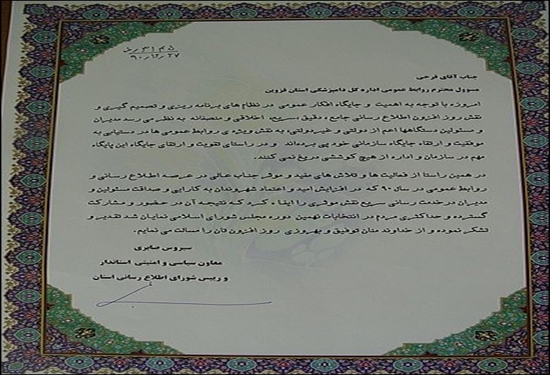 ۹۰/۱۲/۲۷
جناب آقای فرجی
مسوول محترم روابط عمومی اداره کل دامپزشکی استان قزوین
امروزه با توجه به اهمیت و جایگاه افکار عمومی در نظام های برنامه ریزی و تصمیم گیری و
نقش روز افزون اطلاع رسانی جامع، دقیق، سریع، اخلاقی و منصفانه به نظر می رسد مدیران
و مسئولین دستگاهها اعم از دولتی و غیردولتی، به نقش ویژه ی روابط عمومی ها در دستیابی به
موفقیت و ارتقاء جایگاه سازمانی خود پی برده‌اند و در راستای تقویت و ارتقای جایگاه این پایگاه
مهم در سازمان و اداره از هیچ کوششی دریغ نمی کنند.
در همین راستا از فعالیت ها و تلاش های مفید و موثر جناب عالی در عرصه اطلاع رسانی و
روابط عمومی در سال ۹۰ که در افزایش امید و اعتماد شهروندان به کارایی و صداقت مسئولان و
مدیران درخدمت رسانی سریع نقش موثری را ایفاء کرد که نتیجه آن در حضور و مشارکت
گسترده و حداکثری مردم در انتخابات نهمین دوره مجلس شورای اسلامی نمایان شد تقدیر و
تشکر نموده و از خداوند منان توفیق و بهروزی روز افزون تان را مسالت می نمایم.
سیروس صابری
معاون سیاسی و امنیتی استاندار
و رییس شورای اطلاع رسانی استان